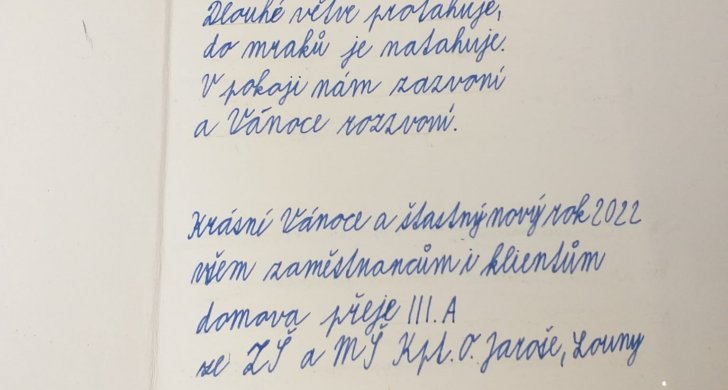 Dlouhé větve protahuje,
do mraků je natahuje.
V pokoji nám zazvoní
a Vánoce rozzvoní.
Krásní Vánoce a šťastný nový rok 2022
všem zaměstnancům i klientům
domova přeje III.A
ze ZŠ a MŠ Kpt. O. Jaroše, Louny